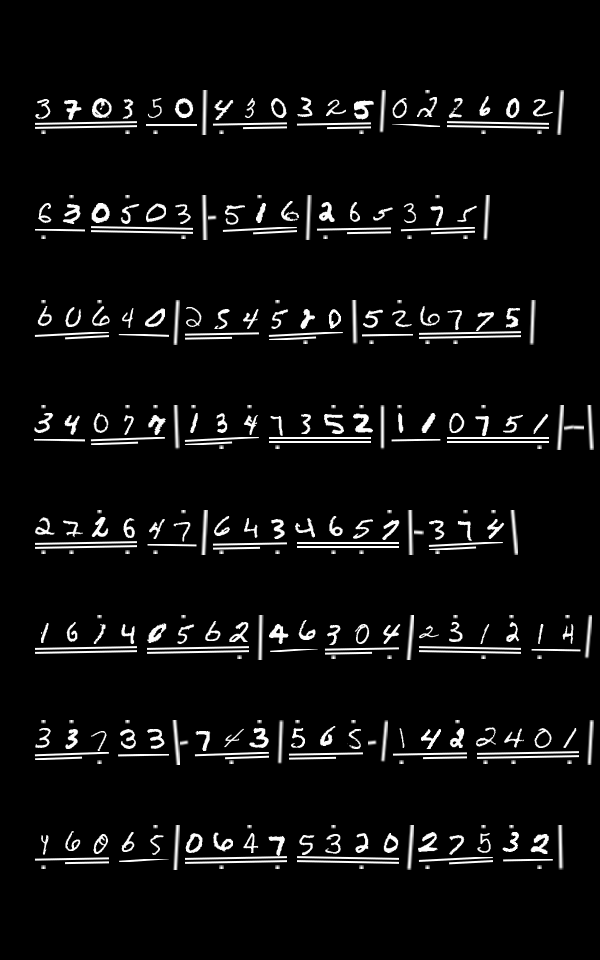 370350|430325|02 2602
630503|-516|265375
60640|254520|526775
34077|1347352|110751|-|
272647|643465 7|-374|
16740562|46304|231214|
33733|-743|565-|1422401|
46065|06475320|27532|